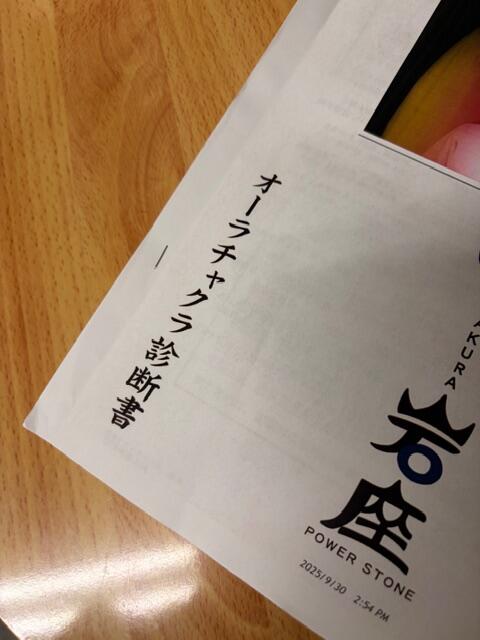 オーラチャクラ診断書
AKURA
岩座
POWER STONE
2025/9/30 2:54 PM